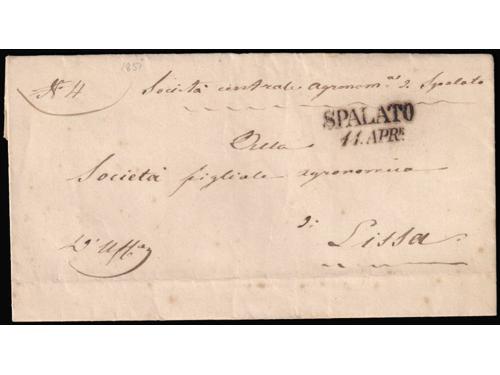 1851
N° 4 Società centrale agronom.ca di Spalato
SPALATO
11. APRE
Alla
Società figliale agronomica
di
Lissa.
D'Uff.o